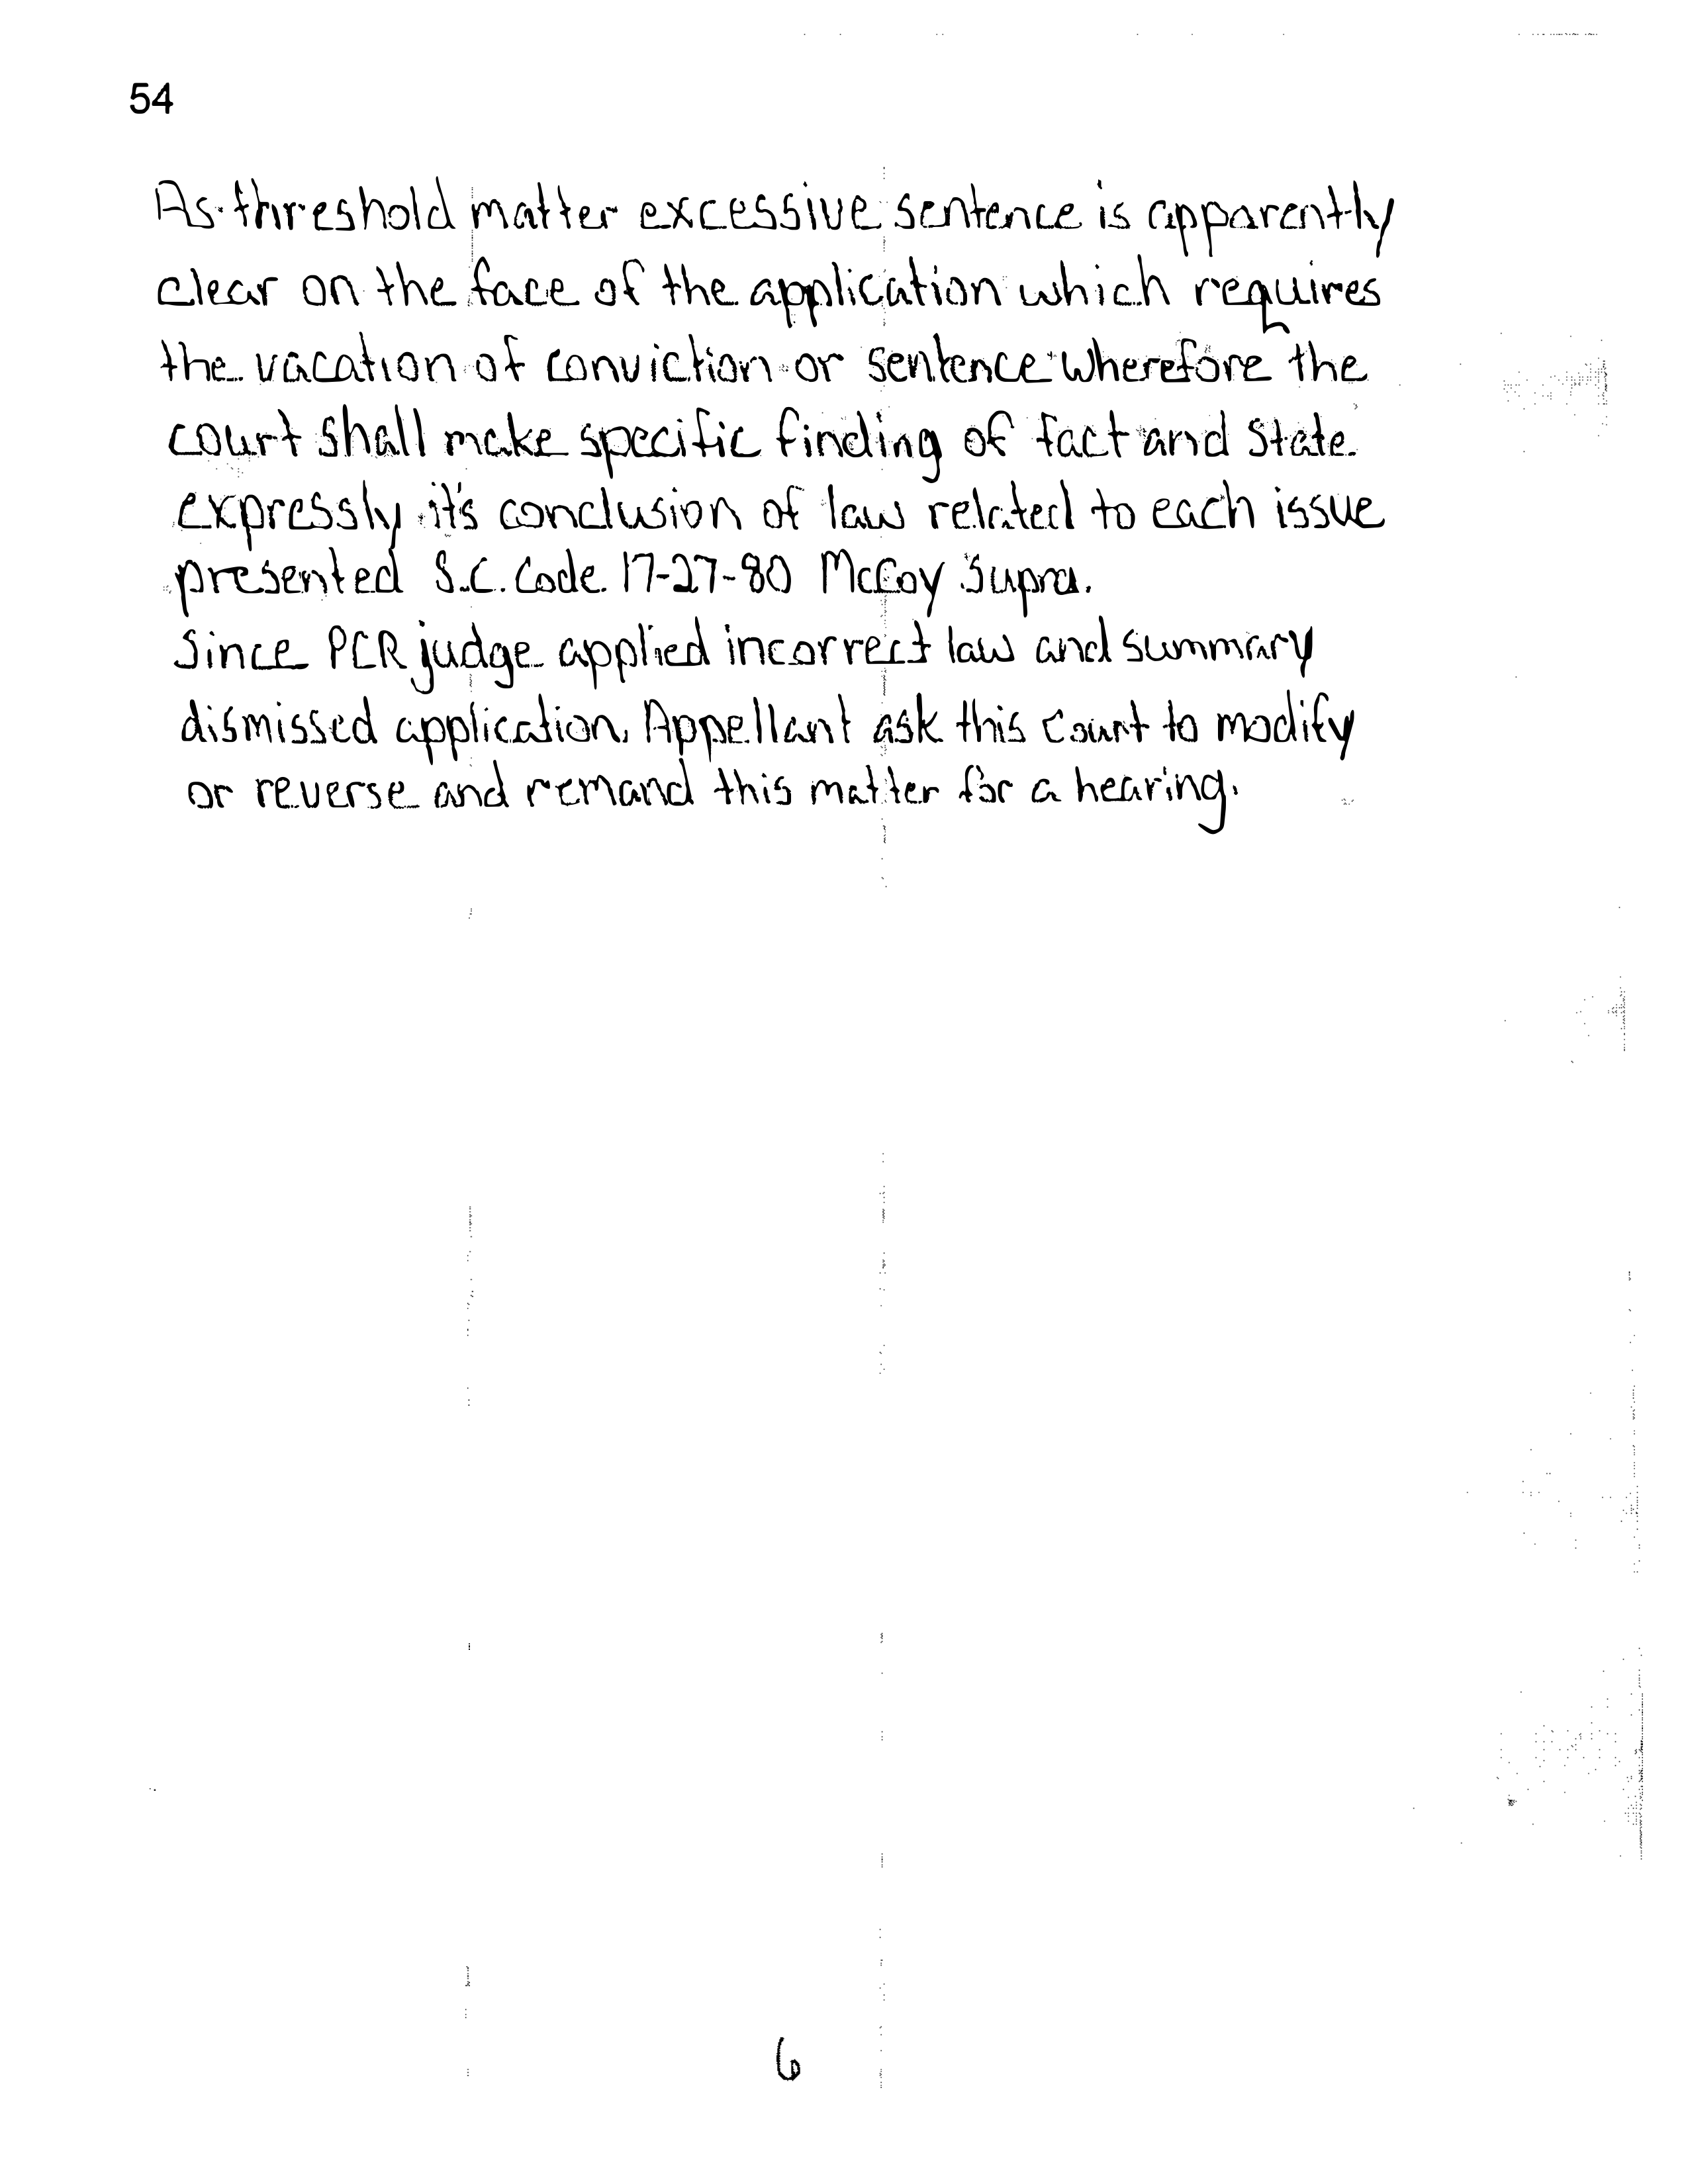 54
As threshold matter excessive sentence is apparently
clear on the face of the application which requires
the vacation of conviction or sentence wherefore the
court shall make specific finding of fact and State
expressly it's conclusion of law related to each issue
presented S.C. Code 17-27-80 McCoy Supra.
Since PCR judge applied incorrect law and summary
dismissed application, Appellant ask this Court to modify
or reverse and remand this matter for a hearing.
6